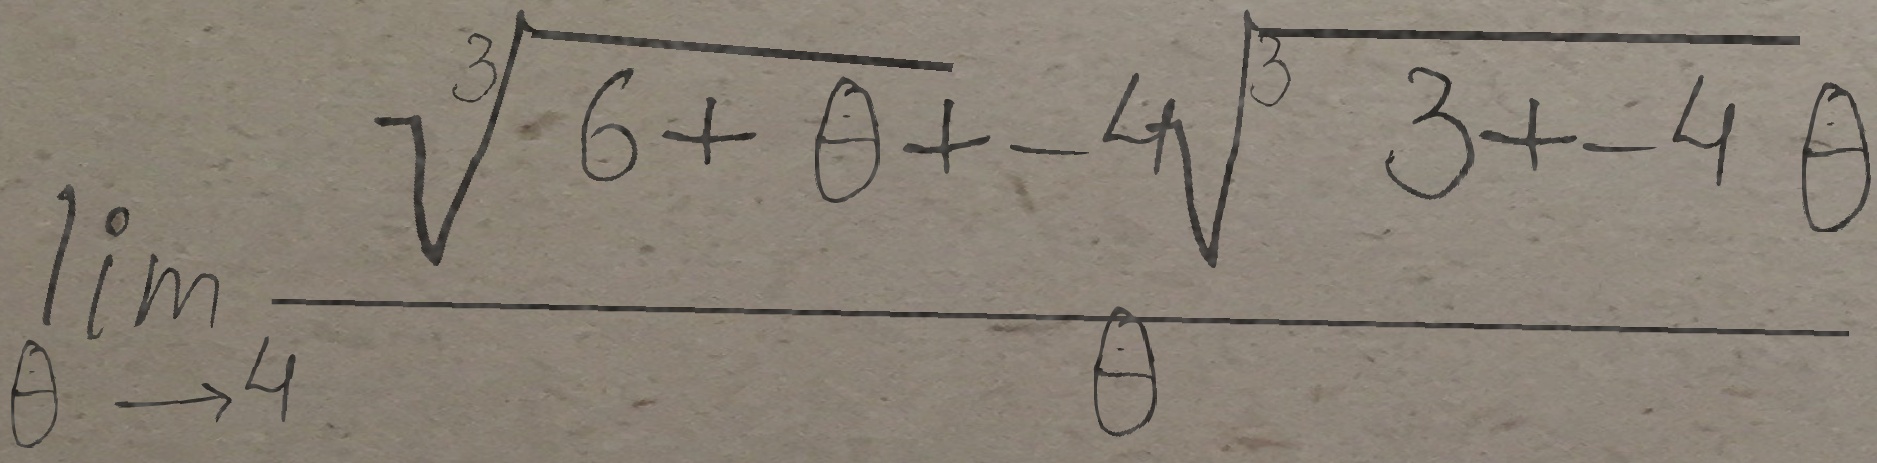 \lim_{\theta \to 4} \frac{\sqrt[3]{6 + \theta} + -4\sqrt[3]{3 + -4\theta}}{\theta}